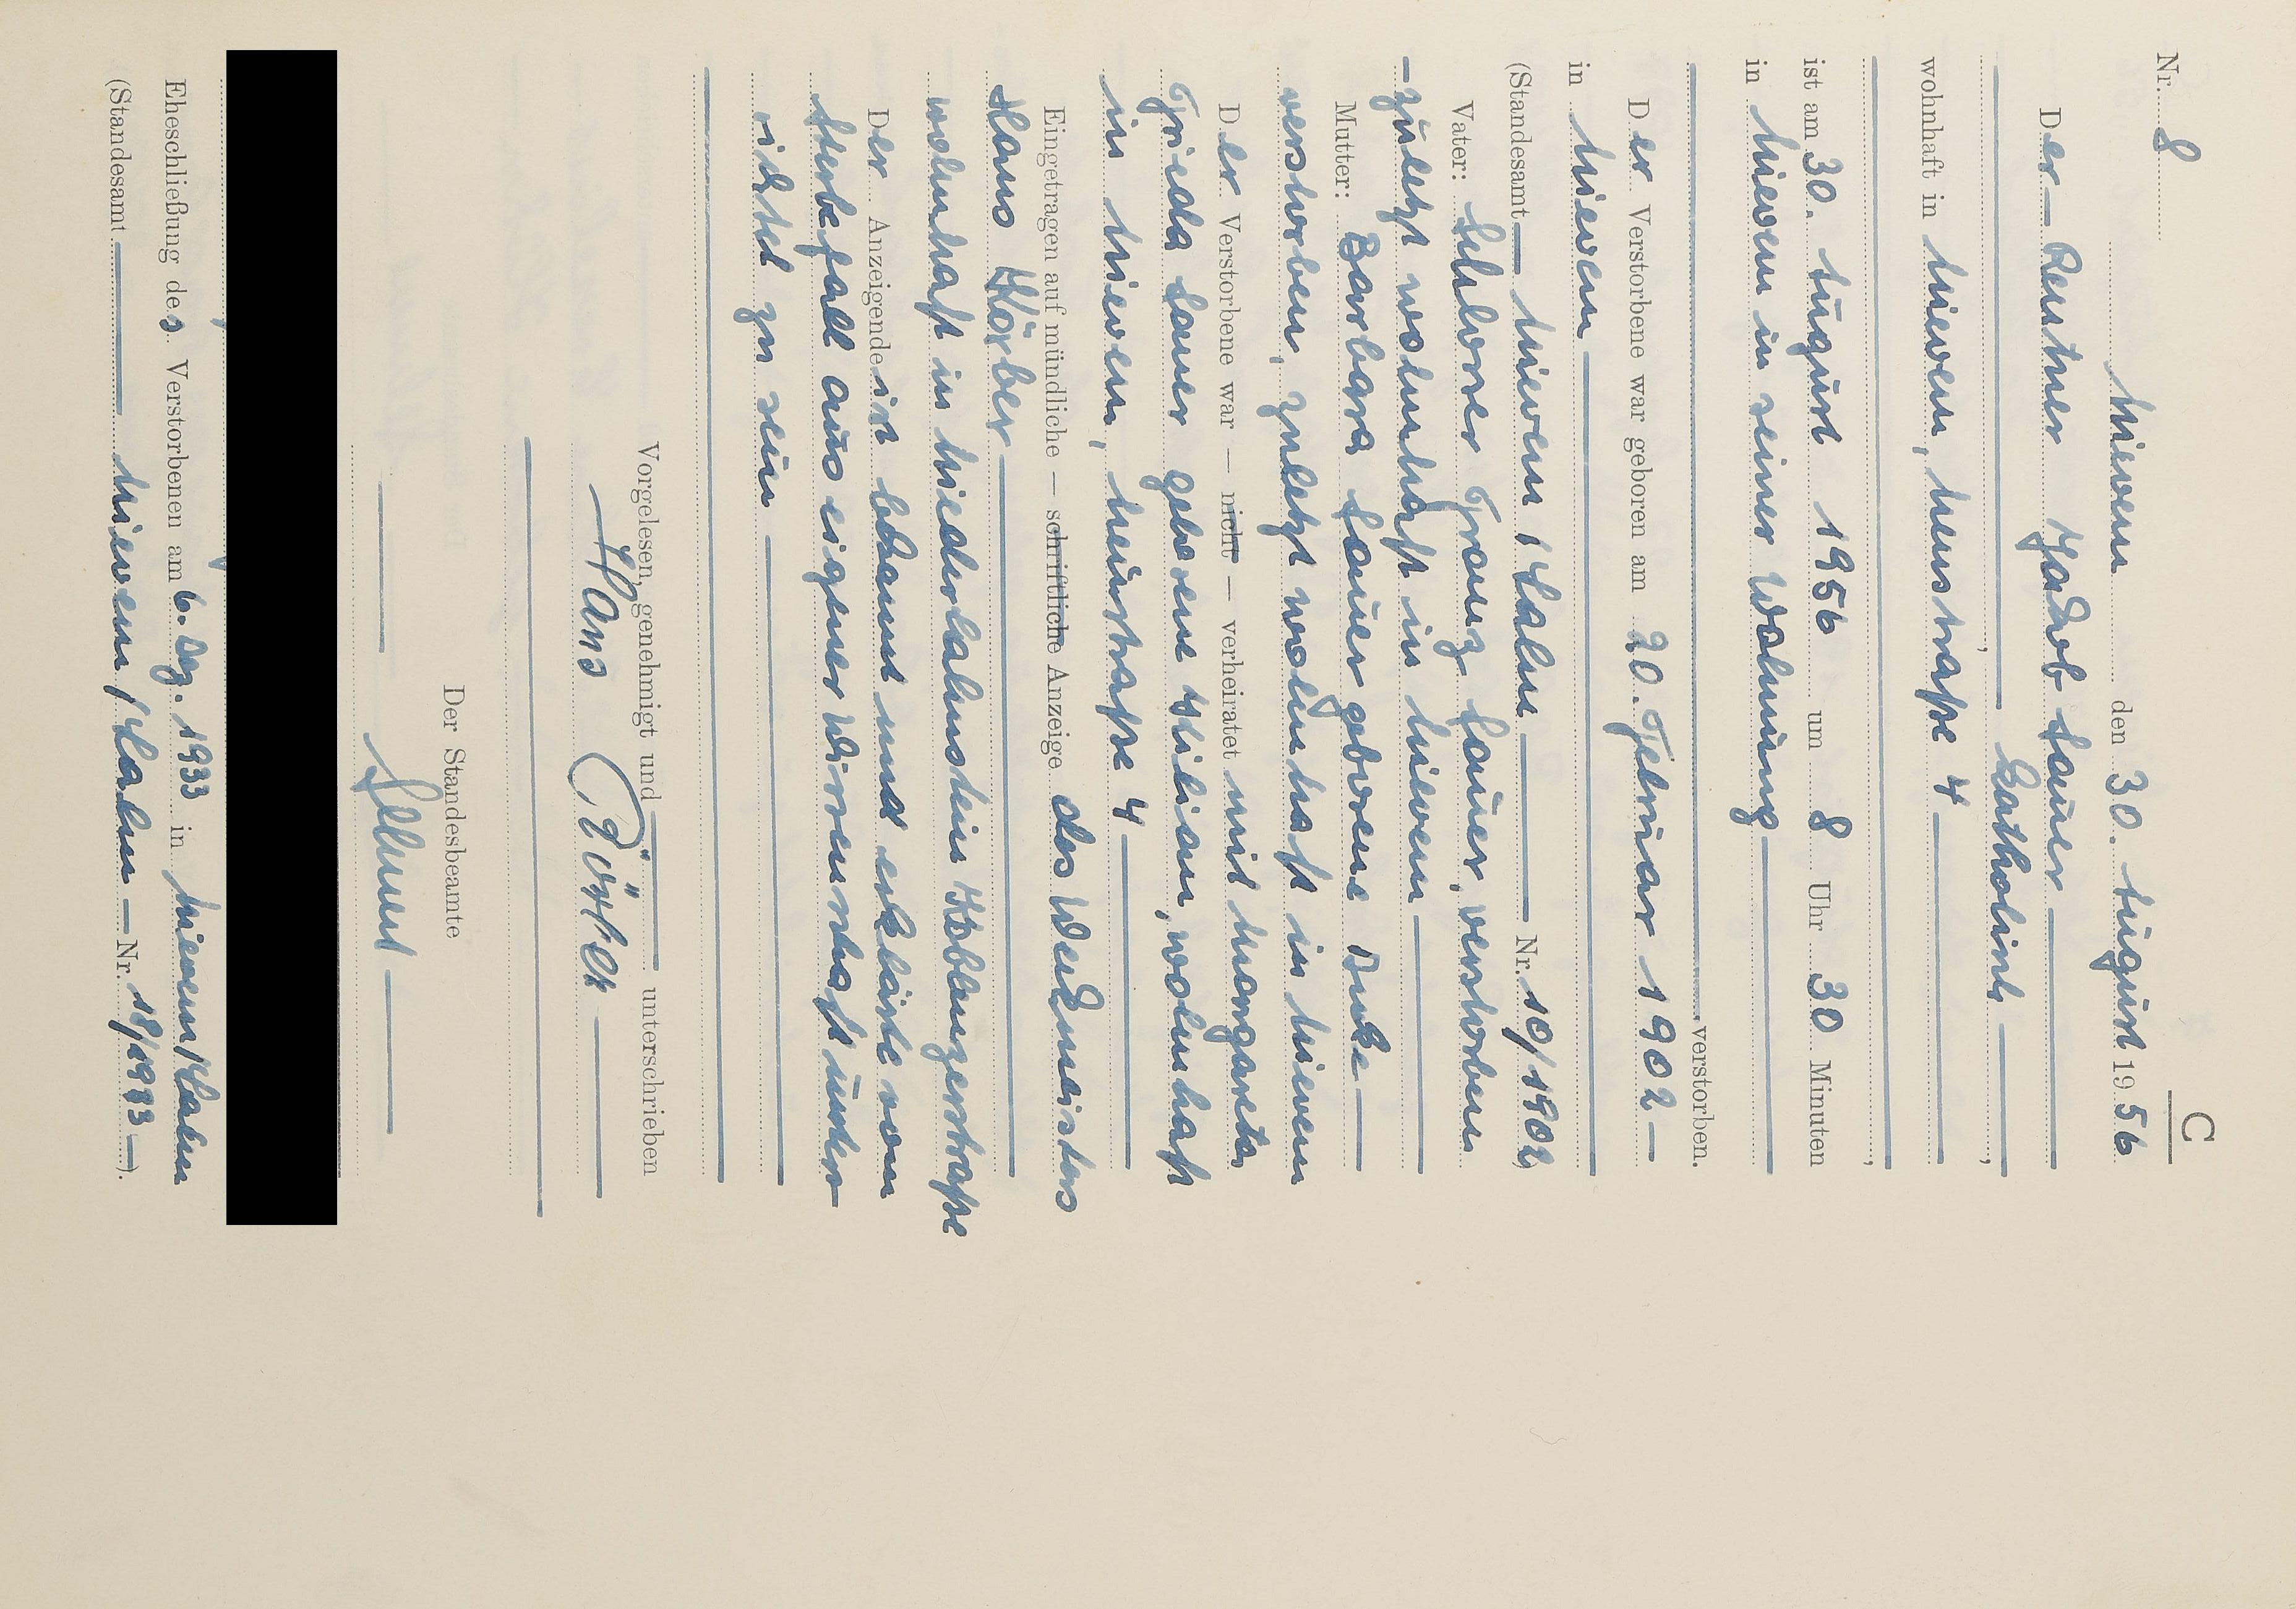 C
Nr. 8
Nievern den 30. August 1956
Der — Rentner Jakob Sauer —
— katholisch —,
wohnhaft in Nievern, Neustraße 4 —
,
ist am 30. August 1956 um 8 Uhr 30 Minuten
in Nievern in seiner Wohnung —
verstorben.
Der Verstorbene war geboren am 20. Februar 1902 —
in Nievern —
(Standesamt — Nievern / Lahn — Nr. 10/1902)
Vater: Franz Sauer, verstorben
- zuletzt wohnhaft in Nievern —
Mutter: Barbara Sauer geborene —
verstorben, zuletzt wohnhaft in Nievern
Der Verstorbene war — nicht — verheiratet mit Margareta
Frieda Sauer geborene Kilian, wohnhaft
in Nievern, Neustraße 4 —
Eingetragen auf mündliche — schriftliche Anzeige des Werkmeisters
Hans Körber —
wohnhaft in Niederlahnstein Koblenzerstraße
Der Anzeigende ist bekannt und erklärte vom
Sterbefall aus eigener Wissenschaft unter-
richtet zu sein —
Vorgelesen, genehmigt und — unterschrieben
— Hans Körber —
Der Standesbeamte
Eheschließung des Verstorbenen am 6. Dez. 1933 in Nievern/Lahn
(Standesamt — Nievern / Lahn — Nr. 18/1933 —).